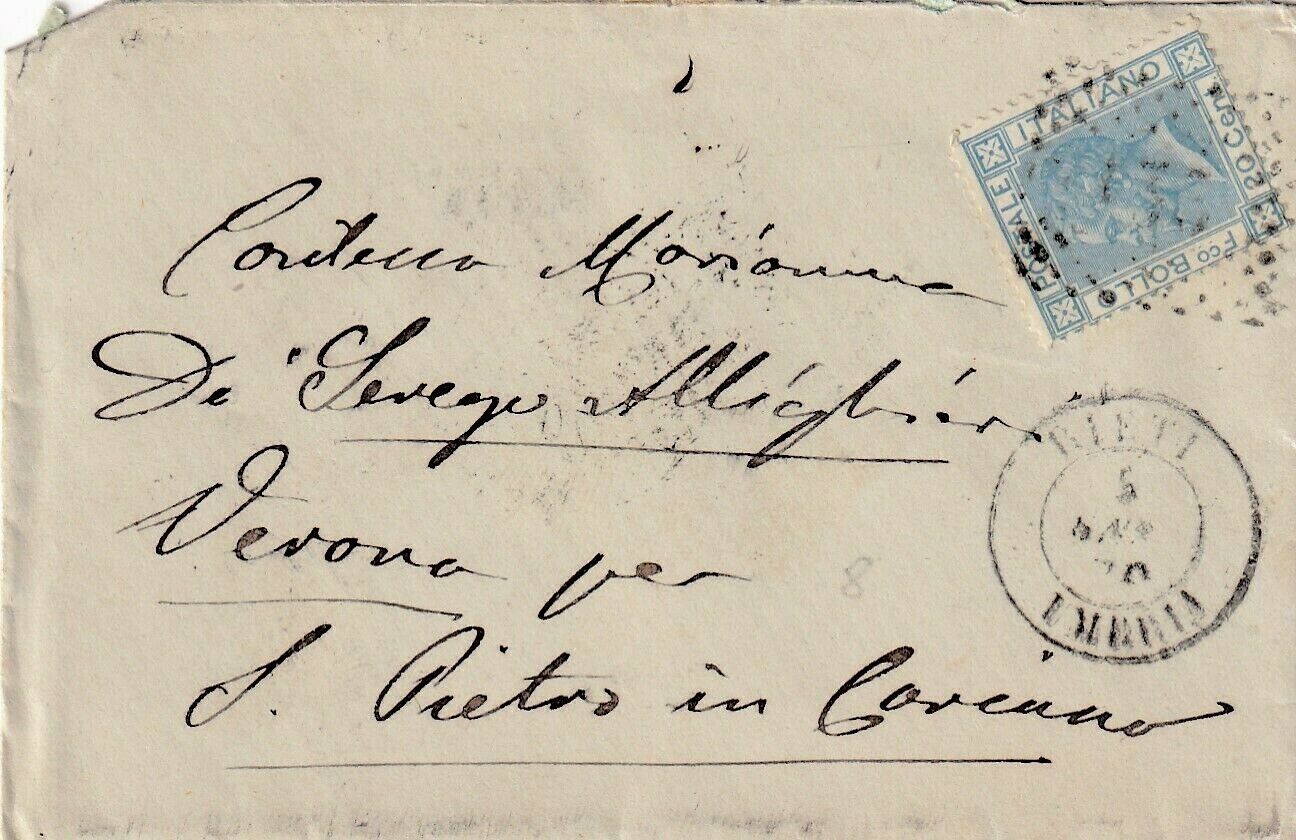 POSTALE ITALIANO
20 Cent.
Fco BOLLO
Contessa Marianna
De' Serego Allighieri
Verona per
S. Pietro in Cariano
RIETI
5
70
UMBRIA
8